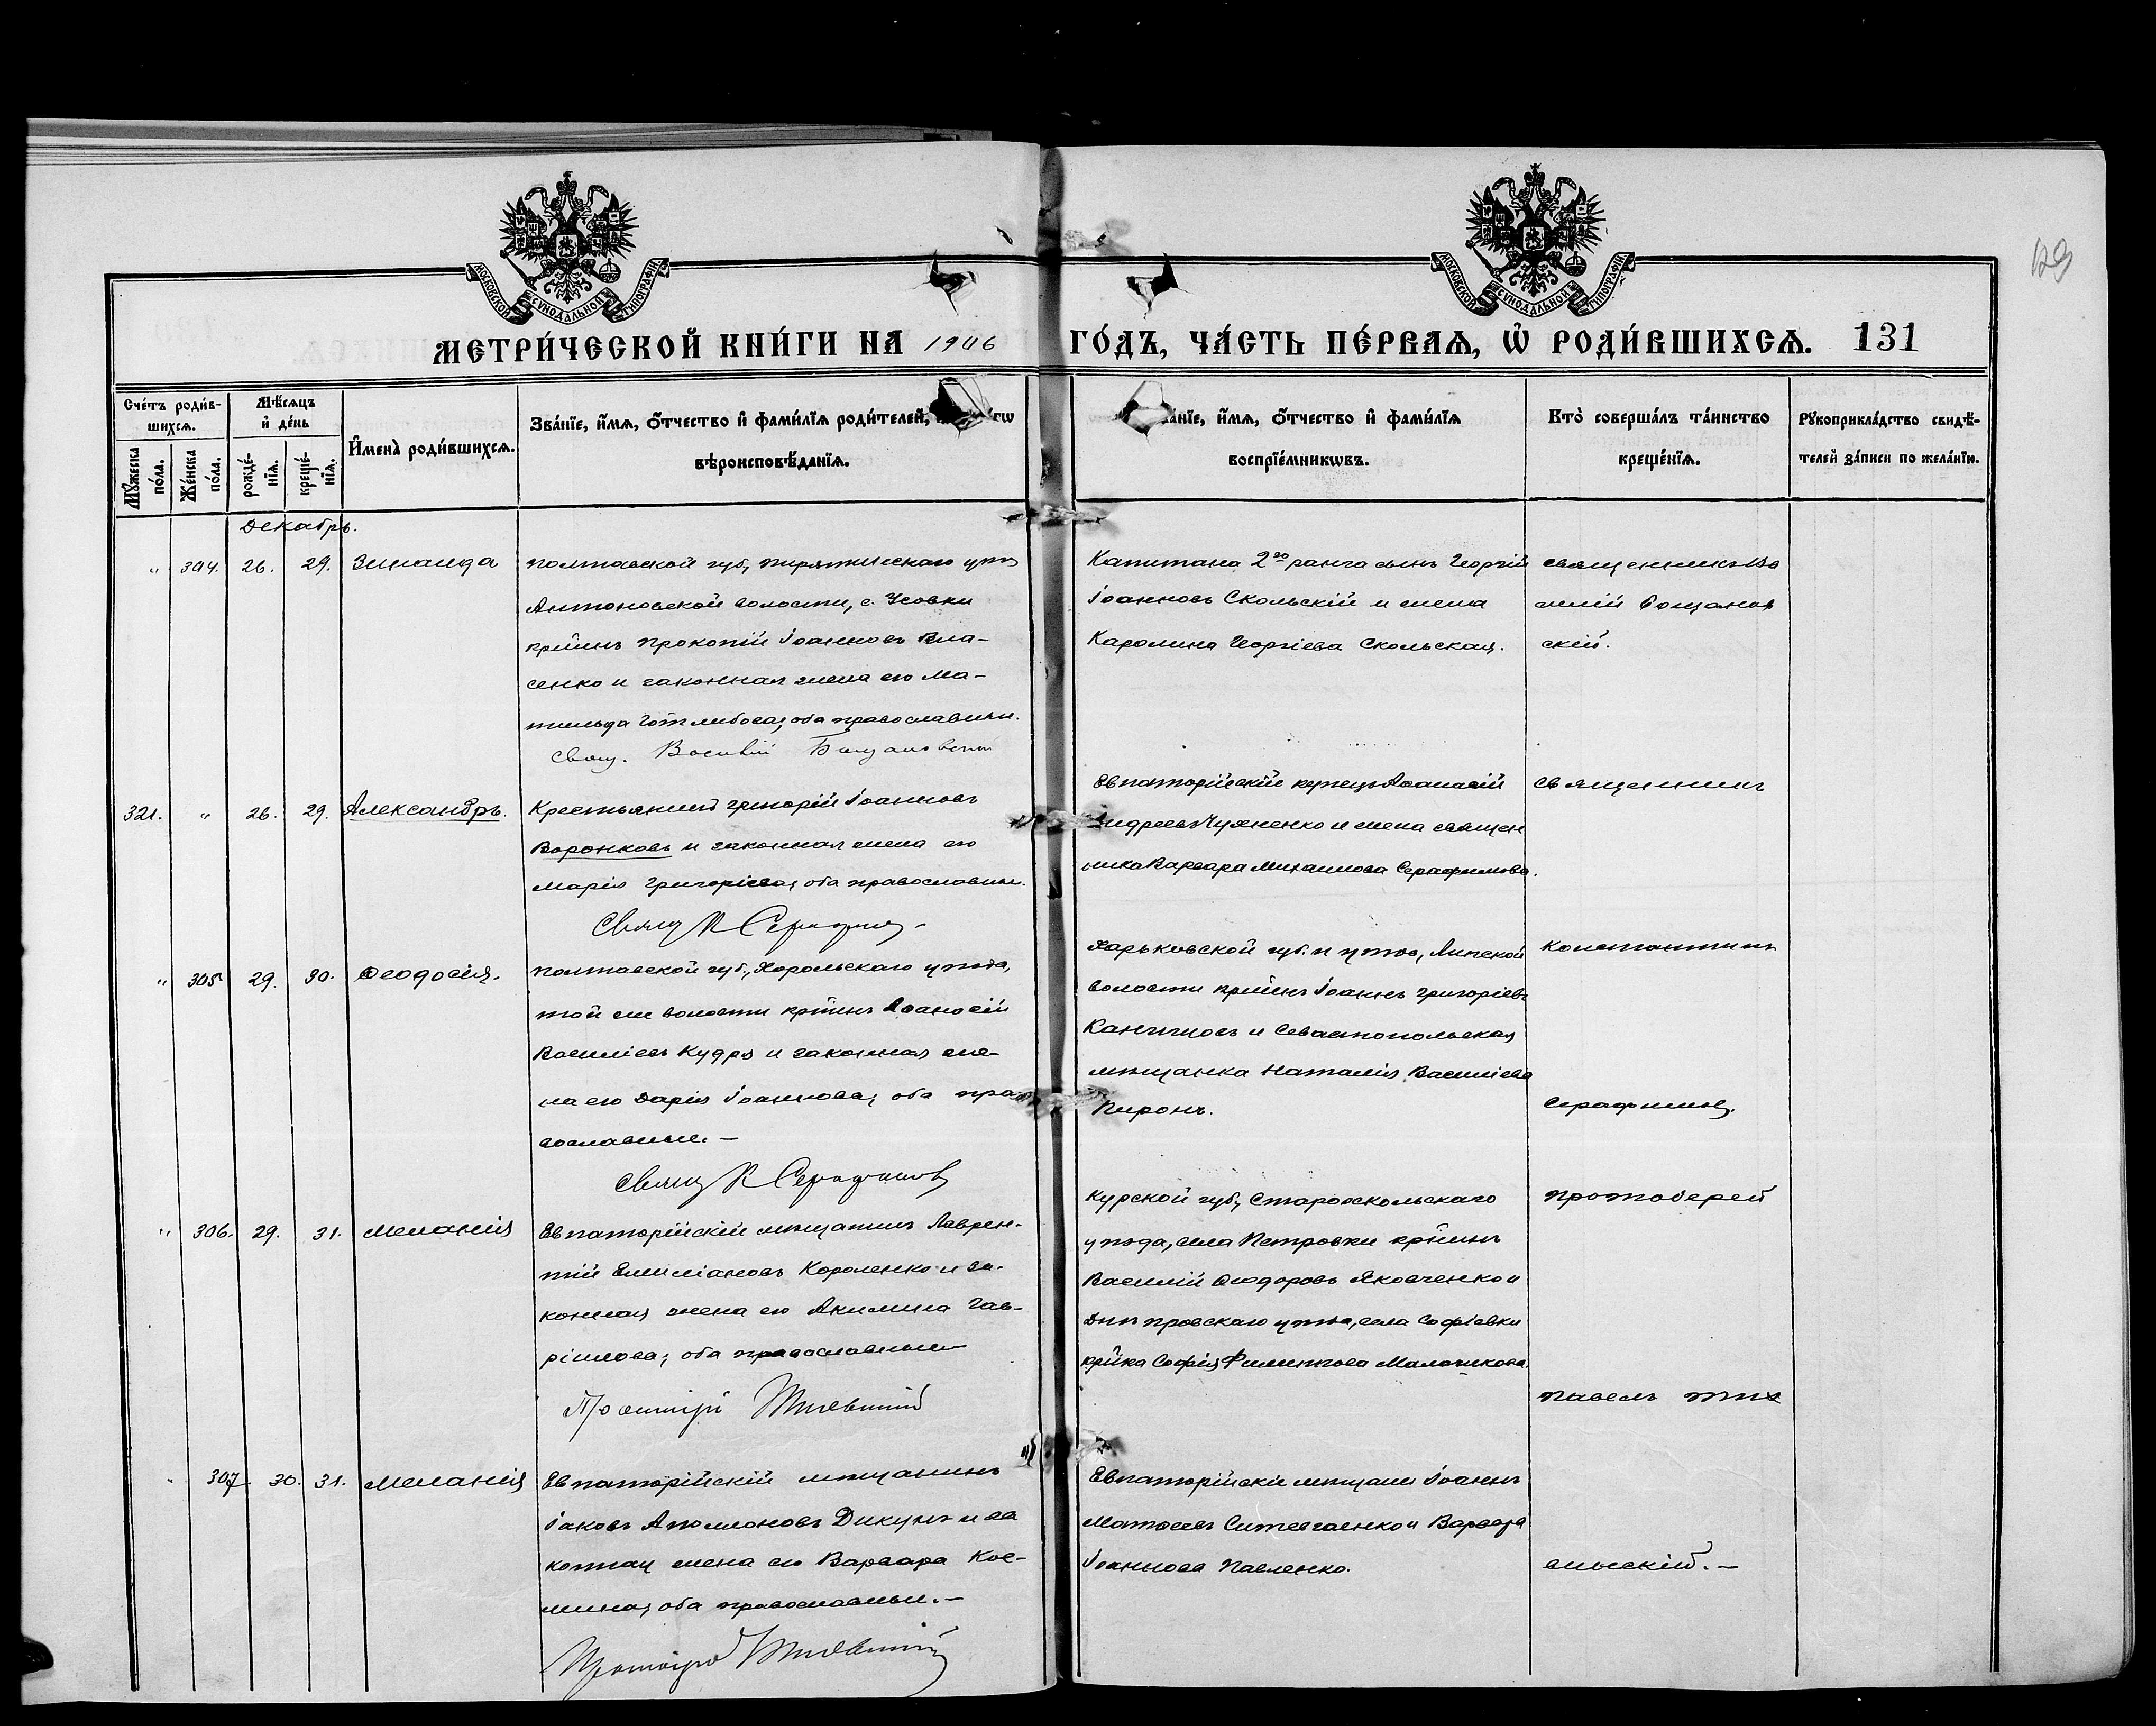 МОСКОВСКОЙ СУНОДАЛЬНОЙ ТИПОГРАФІИ
МОСКОВСКОЙ СУНОДАЛЬНОЙ ТИПОГРАФІИ
129
МЕТРИ́ЧЕСКОЙ КНИ́ГИ НА 1906 ГО́ДЪ, ЧА́СТЬ ПЕ́РВАѦ, Ѡ҆ РОДИ́ВШИХСѦ. 131
Сче́тъ роди́в-
шихсѧ.
Мѣ́сѧцъ
и҆ де́нь
И҆мена̀ роди́вшихсѧ.
Зва́нїе, и҆́мѧ, ѻ҆́тчество и҆ фами́лїѧ роди́телей,
вѣроисповѣ́данїѧ.
и҆́мѧ, ѻ҆́тчество и҆ фами́лїѧ
воспрїе́мникѡвъ.
Кто̀ соверша́лъ та́инство
креще́нїѧ.
Рꙋкоприкла́дство свидѣ́-
телей за́писи по жела́нїю.
Мꙋ́жеска
по́ла.
Же́нска
по́ла.
рожде́-
нїѧ.
креще́-
нїѧ.
Декабрь.
" 304. 26. 29. Зинаида
Полтавской губ., Пирятинскаго уѣз
Антоновской волости, с. Усовки
кр̄йинъ Прокопій Іоанновъ Вла-
сенко и законная жена его Ма-
тильда Готлибова; оба православны.
Свящ. Василій
Капитана 2го ранга сынъ Георгій
Іоанновъ Скольскій и жена
Каролина Георгіева Скольская.
Священникъ Ва
силій
скій.
321. " 26. 29. Александръ.
Крестьянинъ Григорій Іоанновъ
Воронковъ и законная жена его
Марія Григоріева; оба православны.
Свящ К Серафимов
Евпаторійскій купецъ Аѳанасій
Андреевъ Чухненко и жена священ
ника Варвара Михаилова Серафимова.
Священникъ
" 305 29. 30. Ѳеодосія.
Полтавской губ., Хорольскаго уѣзда,
той же волости кр̄йинъ Аѳанасій
Василіевъ Кудря и законная же-
на его Дарія Іоаннова; оба пра
вославные. —
Свящ К Серафимов
Харьковской губ. и уѣзда, Липской
волости кр̄йинъ Іоаннъ Григоріевъ
и Севастопольская
мѣщанка Наталія Василіева
Пиронъ.
Константинъ
Серафимов.
" 306. 29. 31. Меланія
Евпаторійскій мѣщанинъ Лаврен-
тій Емиліановъ Короленко и за-
конная жена его Акилина Гав-
ріилова; оба православные
Протоіерей
Курской губ., Старооскольскаго
уѣзда, села Петровки кр̄йинъ
Василій Ѳеодоровъ Яковченко и
Днѣпровскаго уѣзда, села Софіевки
кр̄йка Софія Филиппова
Протоіерей
Павелъ
" 307 30. 31. Меланія
Евпаторійскій мѣщанинъ
Іаковъ Аполлоновъ Дикунъ и за
конная жена его Варвара Кос-
мина; оба православные. —
Протоіерей
Евпаторійскіе мѣщане Іоаннъ
Матѳеевъ и Варвара
Іоаннова Павленко.